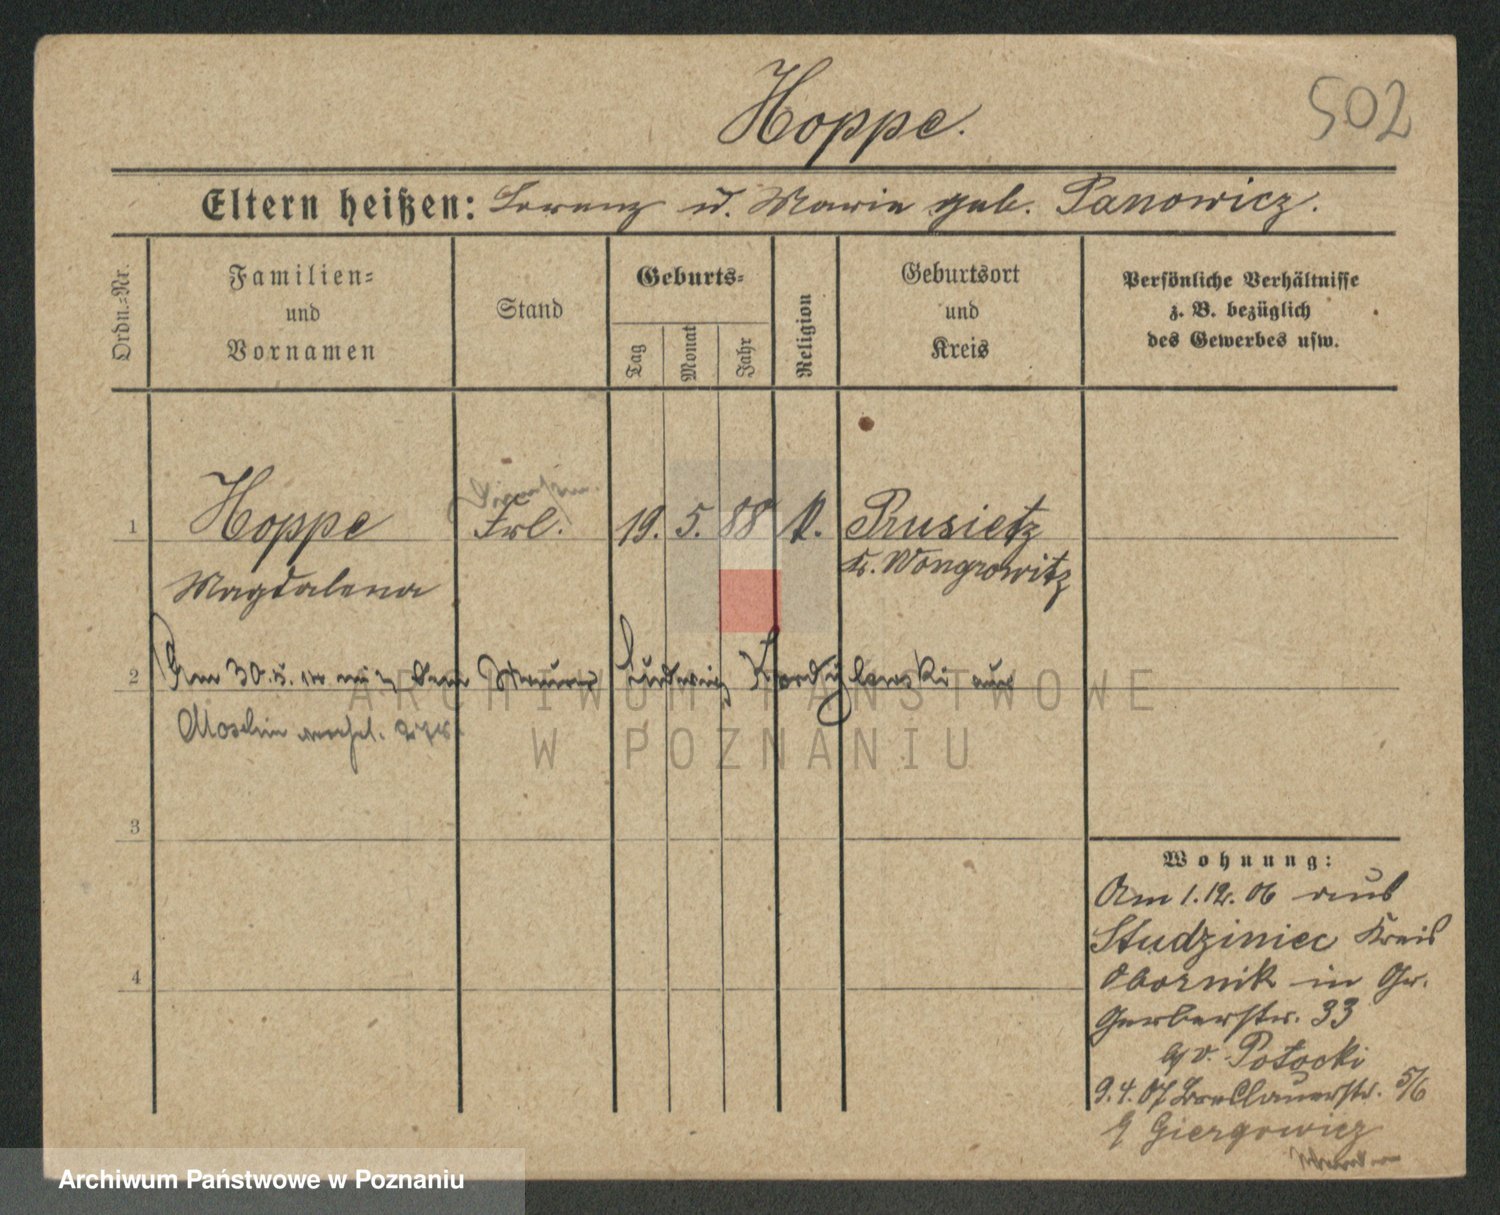 Hoppe.
502
Eltern heißen: Lorenz u. Marie geb. Panowicz.
Ordn.-Nr.
Familien-
und
Vornamen
Stand
Geburts-
Tag
Monat
Jahr
Religion
Geburtsort
und
Kreis
Persönliche Verhältnisse
z. B. bezüglich
des Gewerbes usw.
1
Hoppe
Frl.
19. 5. 88 k. Prusietz
Kr. Wongrowitz
Magdalena
2
Am 30. mit dem Maurer Ludwig aus
Moschin verehel.
ARCHIWUM PAŃSTWOWE
W POZNANIU
3
4
Wohnung:
Am 1.12.06 aus
Studziniec Kreis
Obornik in Gr.
Gerberstr. 33
b/ v. Potocki
9.4.07 Breslauerstr. 5/6
b/ Giergowicz
Archiwum Państwowe w Poznaniu